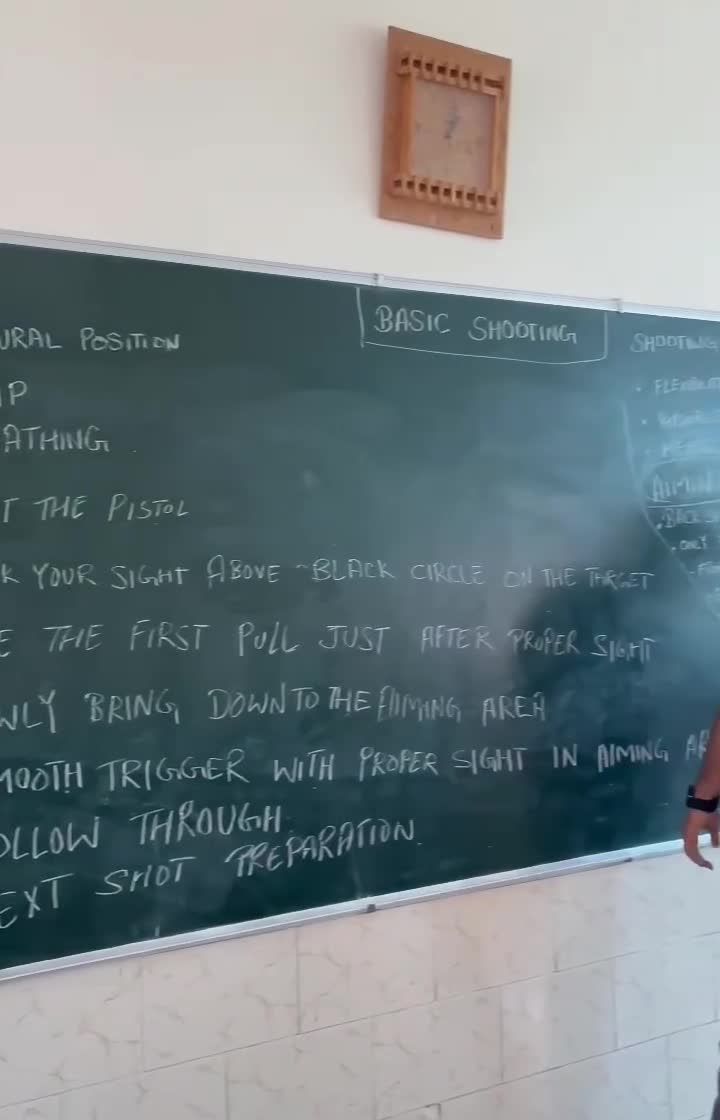 BASIC SHOOTING
URAL POSITION
IP
ATHING
T THE PISTOL
K YOUR SIGHT ABOVE ~BLACK CIRCLE ON THE TARGET
E THE FIRST PULL JUST AFTER PROPER SIGHT
WLY BRING DOWN TO THE AIMING AREA
MOOTH TRIGGER WITH PROPER SIGHT IN AIMING AR
OLLOW THROUGH
EXT SHOT PREPARATION
SHOOTING